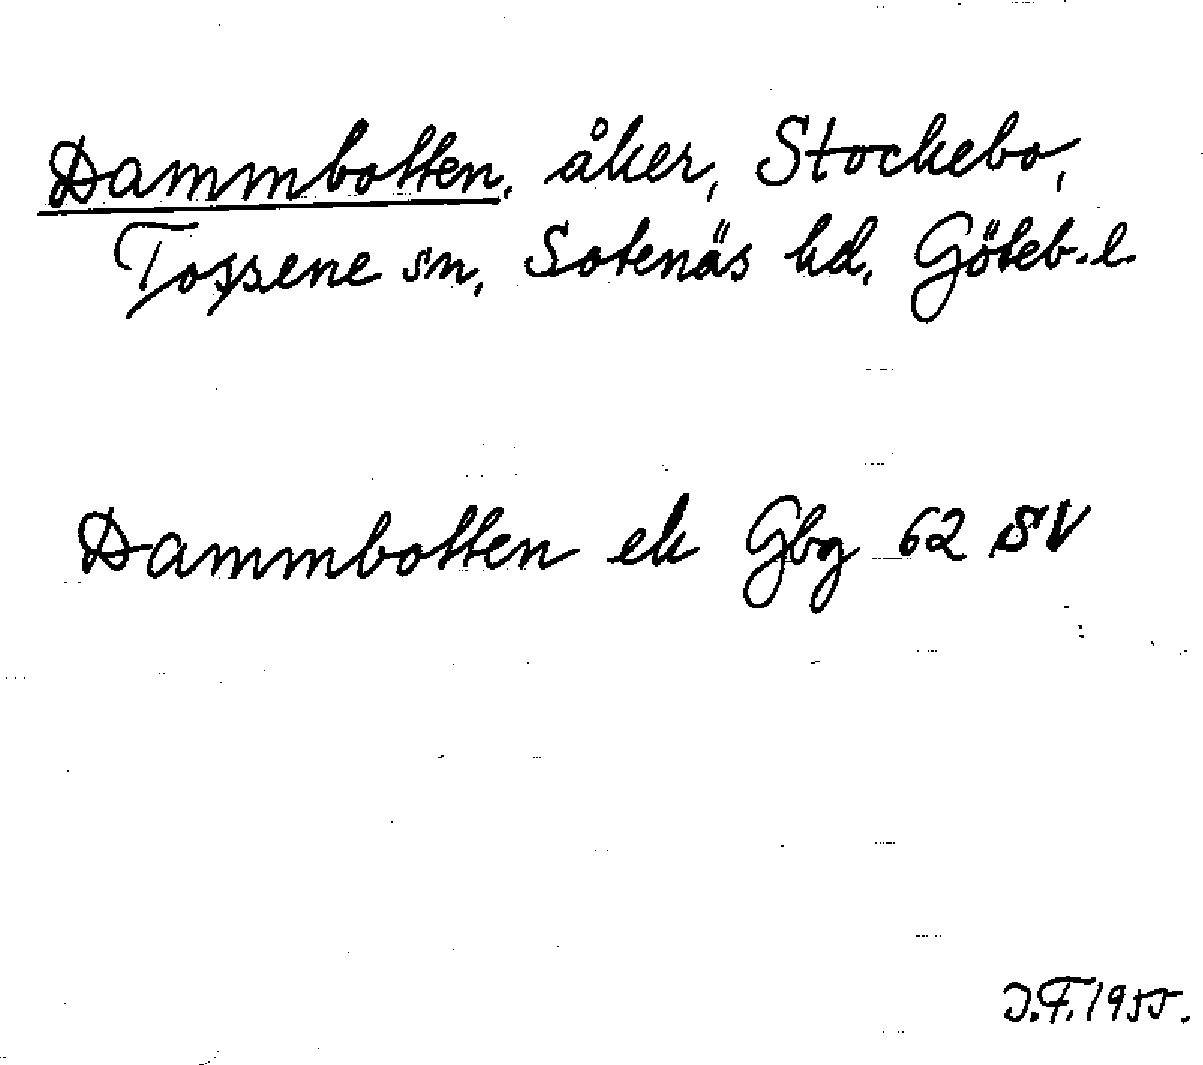 Dammbotten, åker, Stockebo,
Tossene sn, Sotenäs hd, Göteb. l.
Dammbotten ek Gbg 62 SV
J.F. 1955.